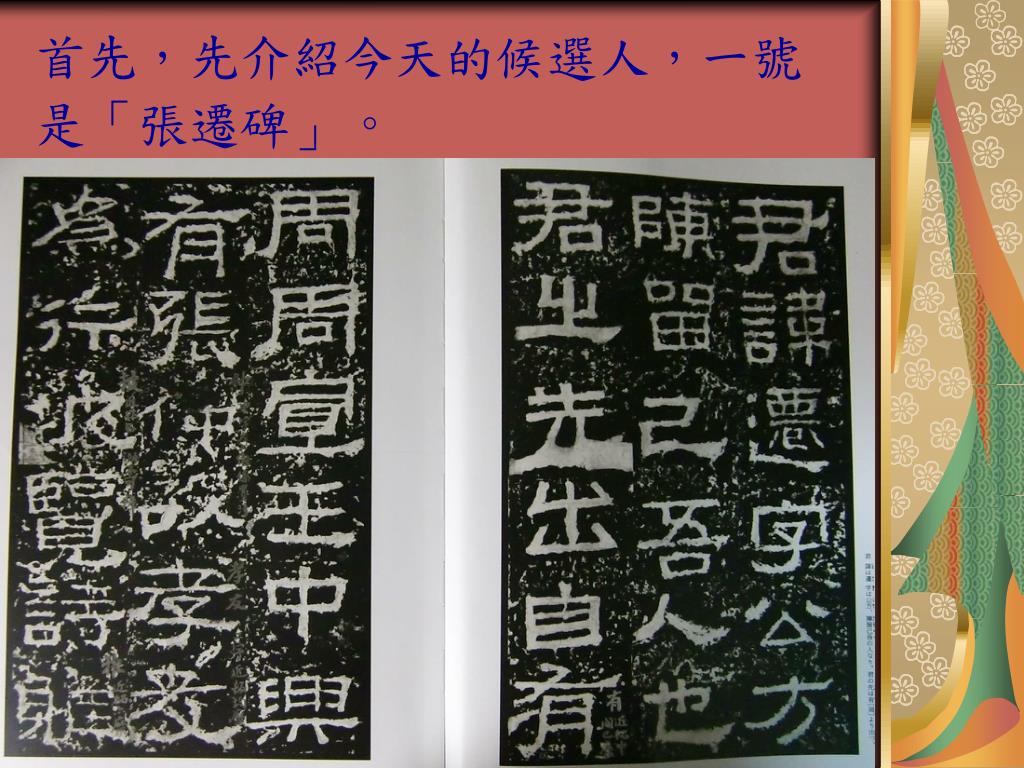 首先，先介紹今天的候選人，一號
是「張遷碑」。
君諱遷字公方
陳留己吾人也
君之先出自有
周周宣王中興
有張仲以孝友
為行披覽詩雅